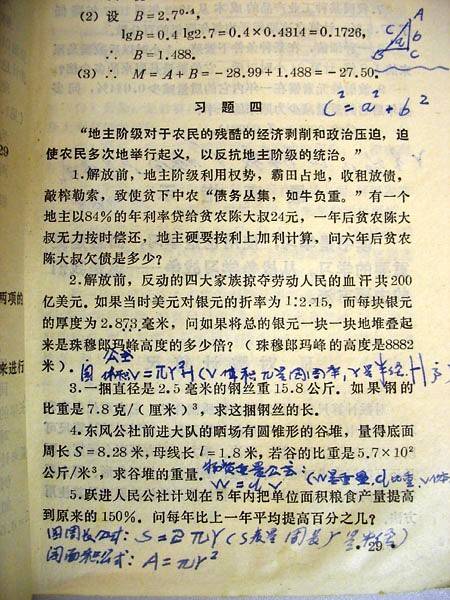 (2) 设 B=2.7⁰·⁴,
lgB=0.4 lg2.7=0.4×0.4314=0.1726,
∴ B=1.488.
(3) ∴ M=A+B=-28.99+1.488=-27.50.
A
C
b
B
C
c²=a²+b²
习题四
“地主阶级对于农民的残酷的经济剥削和政治压迫，迫
使农民多次地举行起义，以反抗地主阶级的统治。”
1.解放前，地主阶级利用权势，霸田占地，收租放债，
敲榨勒索，致使贫下中农“债务丛集，如牛负重。”有一个
地主以84%的年利率贷给贫农陈大叔24元，一年后贫农陈大
叔无力按时偿还，地主硬要按利上加利计算，问六年后贫农
陈大叔欠债是多少？
2.解放前，反动的四大家族掠夺劳动人民的血汗共200
亿美元。如果当时美元对银元的折率为1:2.15，而每块银元
的厚度为2.873毫米，问如果将总的银元一块一块地堆叠起
来是珠穆郎玛峰高度的多少倍？（珠穆郎玛峰的高度是8882
米）.
公式
圆体积V=πr²H (V体积 π是圆周率, r是半径 H
3.一捆直径是2.5毫米的钢丝重15.8公斤．如果钢的
比重是7.8克／（厘米）³，求这捆钢丝的长．
4.东风公社前进大队的晒场有圆锥形的谷堆，量得底面
周长S=8.28米，母线长l=1.8米，若谷的比重是5.7×10²
公斤/米³，求谷堆的重量．
物质重量公式:
W=d.V
(W是重量,d比重,V体
5.跃进人民公社计划在5年内把单位面积粮食产量提高
到原来的150%．问每年比上一年平均提高百分之几？
圆周长公式: S=2πr (S是圆长 r是半径)
圆面积公式: A=πr²
·29·
29
两项的
来进行